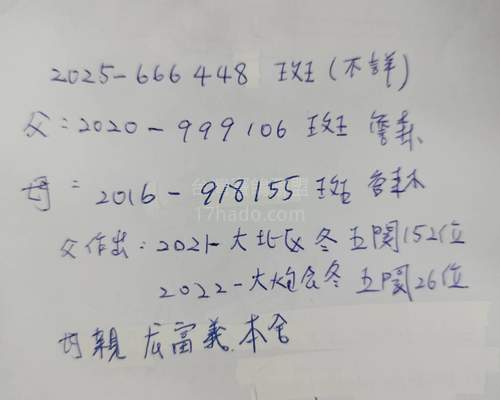 2025-666448 斑 (不詳)
父:2020-999106 斑
母:2016-918155 斑
17hado.com
父作出:2021-大北区冬五関152位
2022-大炮会冬五関26位
母親 富義.本舍